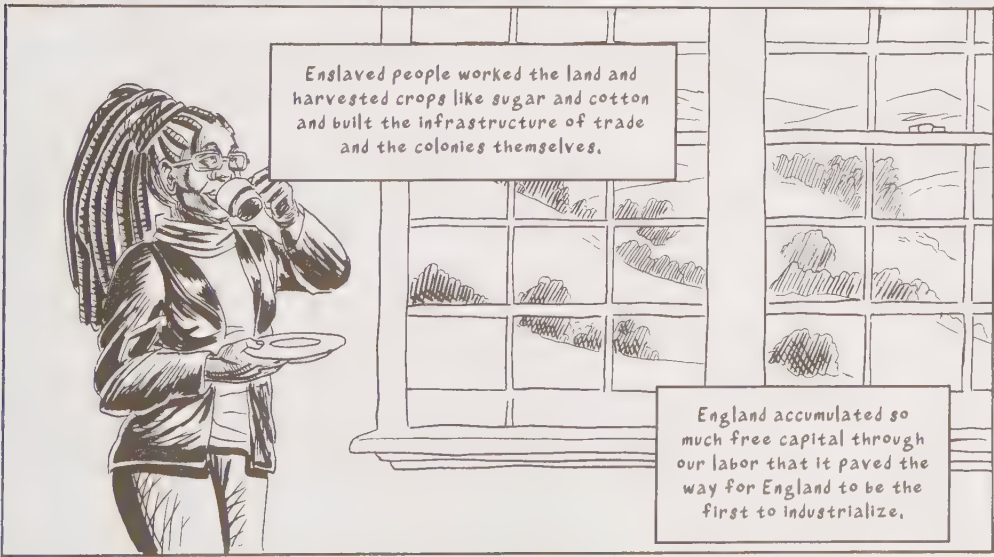 Enslaved people worked the land and
harvested crops like sugar and cotton
and built the infrastructure of trade
and the colonies themselves.
England accumulated so
much free capital through
our labor that it paved the
way for England to be the
first to industrialize.